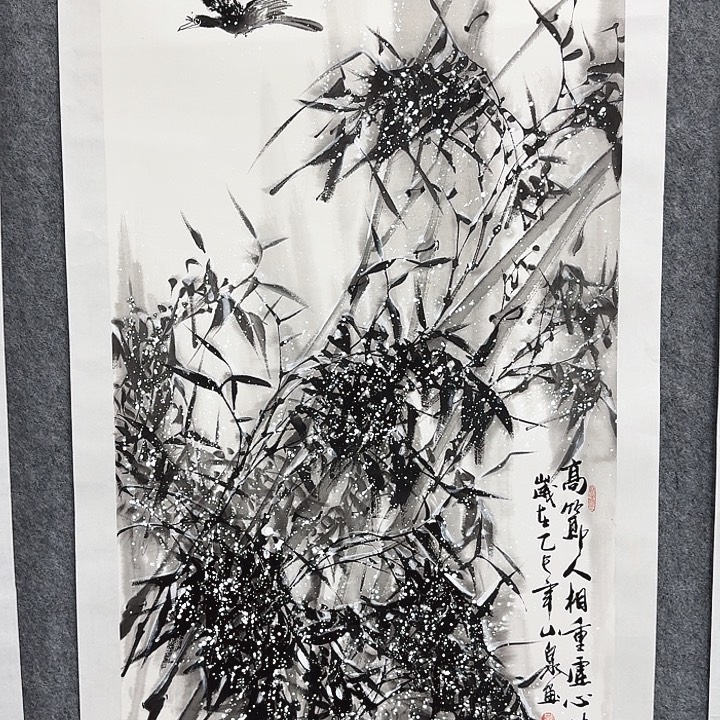 高節人相重虛心
歲在乙巳年山泉画